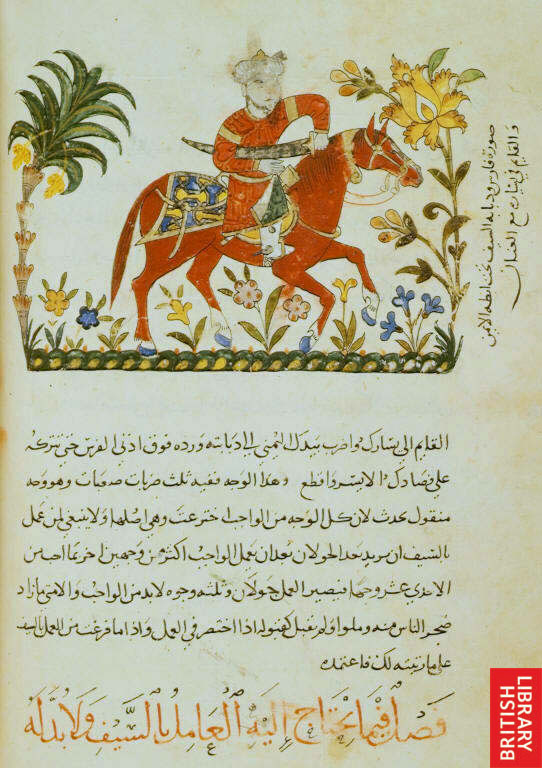 صورة فارس وبيده السيف تحت ابطه الايمن
والقايم في يساره مع العنان
القايم الى يسارك واضرب بيدك اليمنى الى ادباته ورده فوق اذنى الفرس حتى تتركه
على فصادك الايسر واقطع وهذا الوجه ففيه ثلث ضربات صعبات وهو وجه
منقول محدث لان كل الوجه من الواجب اخترعت وهى اصلها ولا ينبغى لمن عمل
بالسيف ان يريد بعد الجولان بعد ان يعمل الواجب اكثر من وجهين اخر بما احب من
الاحدى عشر وجها فيصير العمل جولان وثلثه وجوه لابد من الواجب والا متى مازاد
ضجر الناس منه وملوا ولم يقبل كقبوله اذا اختصر فى العمل واذا ما فرغت من العمل بالسيف
على ما رتبته لك فاعتمده
فصل فيما يحتاج اليه العامل بالسيف ولا بد له
BRITISH
LIBRARY